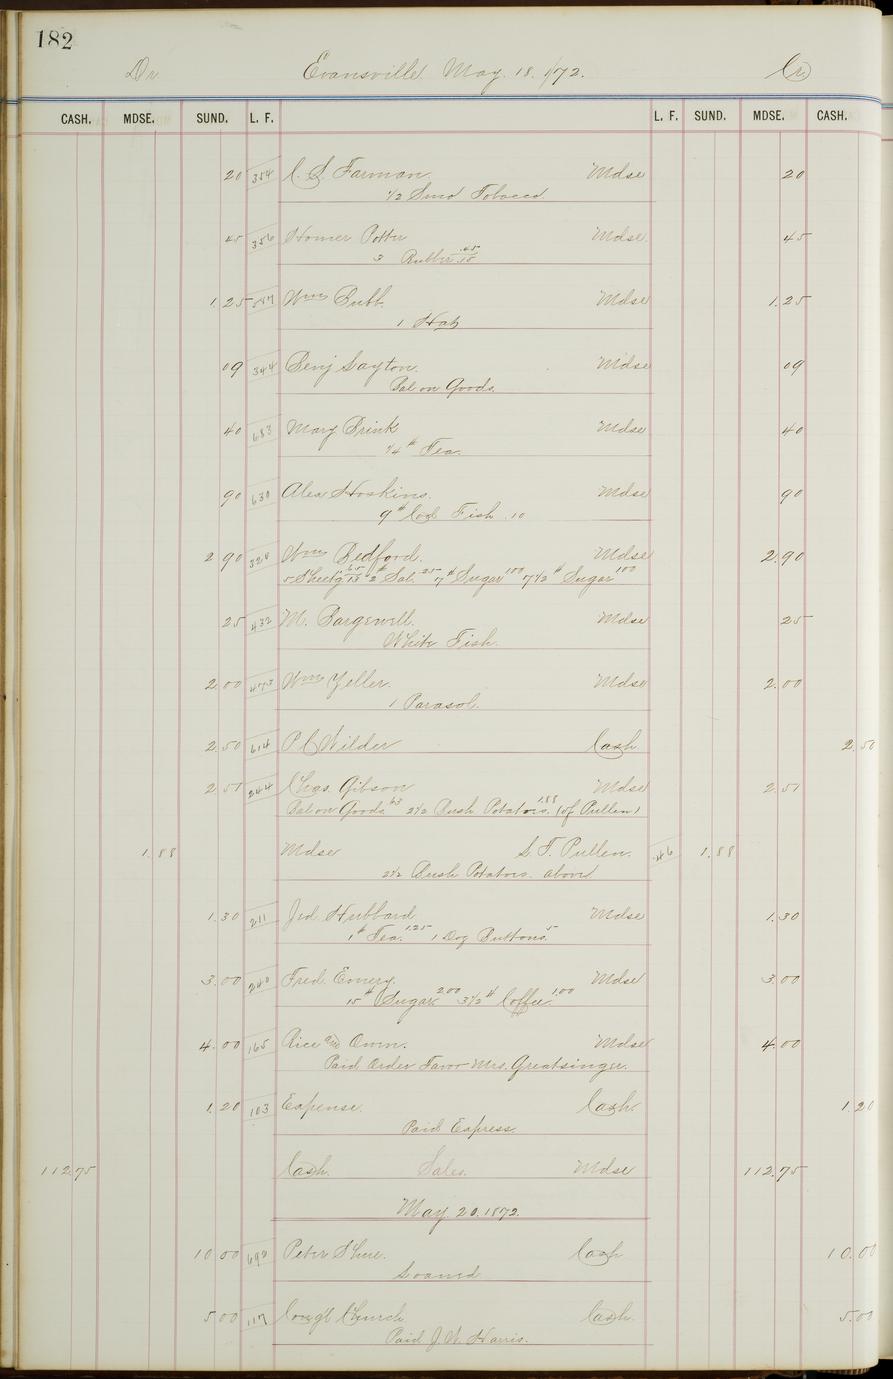 182
Dr Evansville May. 18. 1872. Cr
CASH. MDSE. SUND. L. F. L. F. SUND. MDSE. CASH.
20 354 C. S. Farman. Mdse 20
1/2 Tobacco
45 356 Homer Potter Mdse. 45
3 Rubber .45 15
1.25 587 Wm Bubb. Mdse 1.25
1 Hat
09 344 Benj Layton. Mdse 09
Bal on Goods.
40 683 Mary Brink Mdse 40
1/4 # Tea.
90 630 Alex Hoskins. Mdse 90
9 # Cod Fish .10
2 90 328 Wm Bedford. Mdse 2.90
5 Sheet'g 65 13 2 # Sal. 25 7 # Sugar 100 7 1/2 # Sugar 100
25 432 M. Bargewell. Mdse 25
White Fish.
2.00 473 Wm Yeller. Mdse 2.00
1 Parasol.
2.50 614 P C Wilder Cash 2.50
2 51 244 Chas. Gibson Mdse 2.51
Bal on Goods 63 2 1/2 Bush Potatoes. 1.88 (of Pullen)
1.88 Mdse L. T. Pullen. 46 1.88
2 1/2 Bush Potatoes. above
1.30 211 Jed Hubbard Mdse 1.30
1 # Tea. 1.25 1 Dog Buttons. 5
3.00 240 Fred. Emery. Mdse 3.00
15 # Sugar 2.00 3 1/2 # Coffee 1.00
4.00 165 Rice and Owen. Mdse 4.00
Paid Order Favor Mrs. Greatsinger.
1.20 103 Expense. Cash. 1.20
Paid Express.
112.75 Cash. Sales. Mdse 112.75
May. 20. 1872.
10 00 692 Peter Shue. Cash 10.00
Loaned
5 00 117 Cong'l Church Cash. 5.00
Paid J. W. Harris.